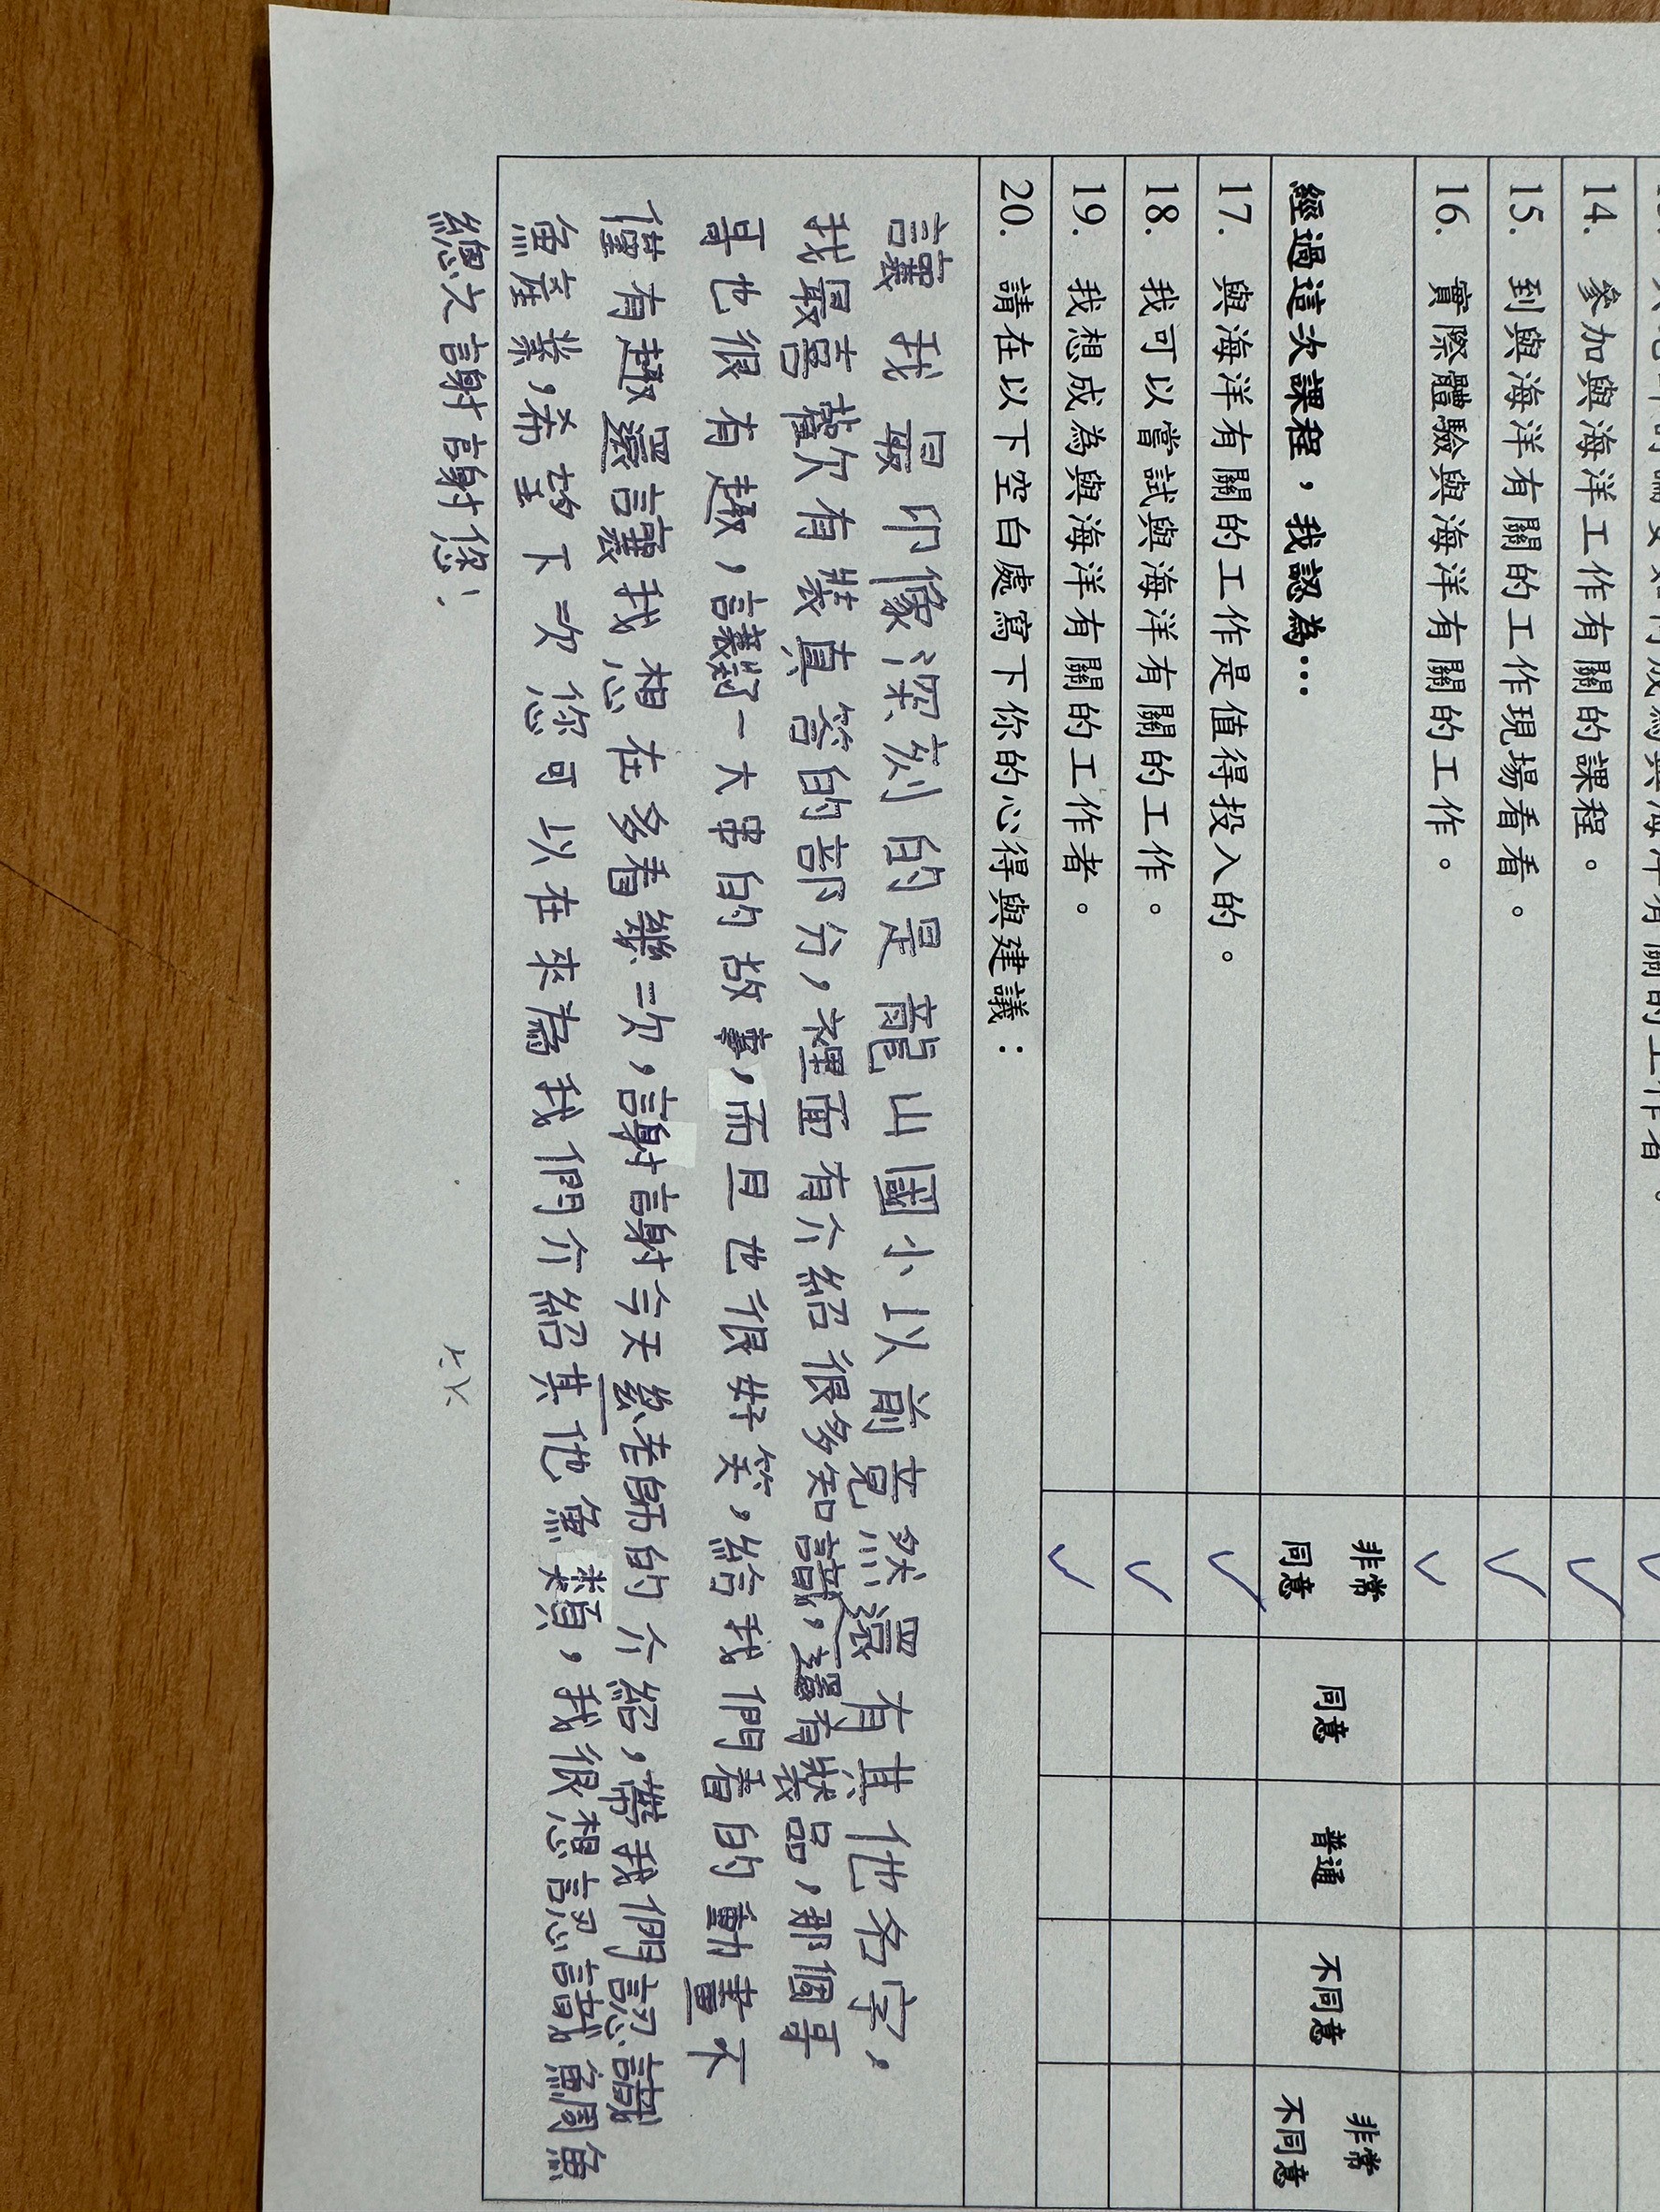 14. 參加與海洋工作有關的課程。
15. 到與海洋有關的工作現場看看。
16. 實際體驗與海洋有關的工作。
經過這次課程，我認為… 非常同意 同意 普通 不同意 非常不同意
17. 與海洋有關的工作是值得投入的。
18. 我可以嘗試與海洋有關的工作。
19. 我想成為與海洋有關的工作者。
20. 請在以下空白處寫下你的心得與建議：
讓我最印像深刻的是龍山國小以前竟然還有其他名字，
我最喜歡有獎真答的部分，裡面有介紹很多知識，還有獎品，那個哥
哥也很有趣，講了一大串的故事，而且也很好笑，給我們看的動畫不
僅有趣還讓我想在多看幾次，謝謝今天 老師的介紹，帶我們認識
魚產業，希望下次您可以在來為我們介紹其他魚類，我很想認識鬥魚
總之謝謝您！